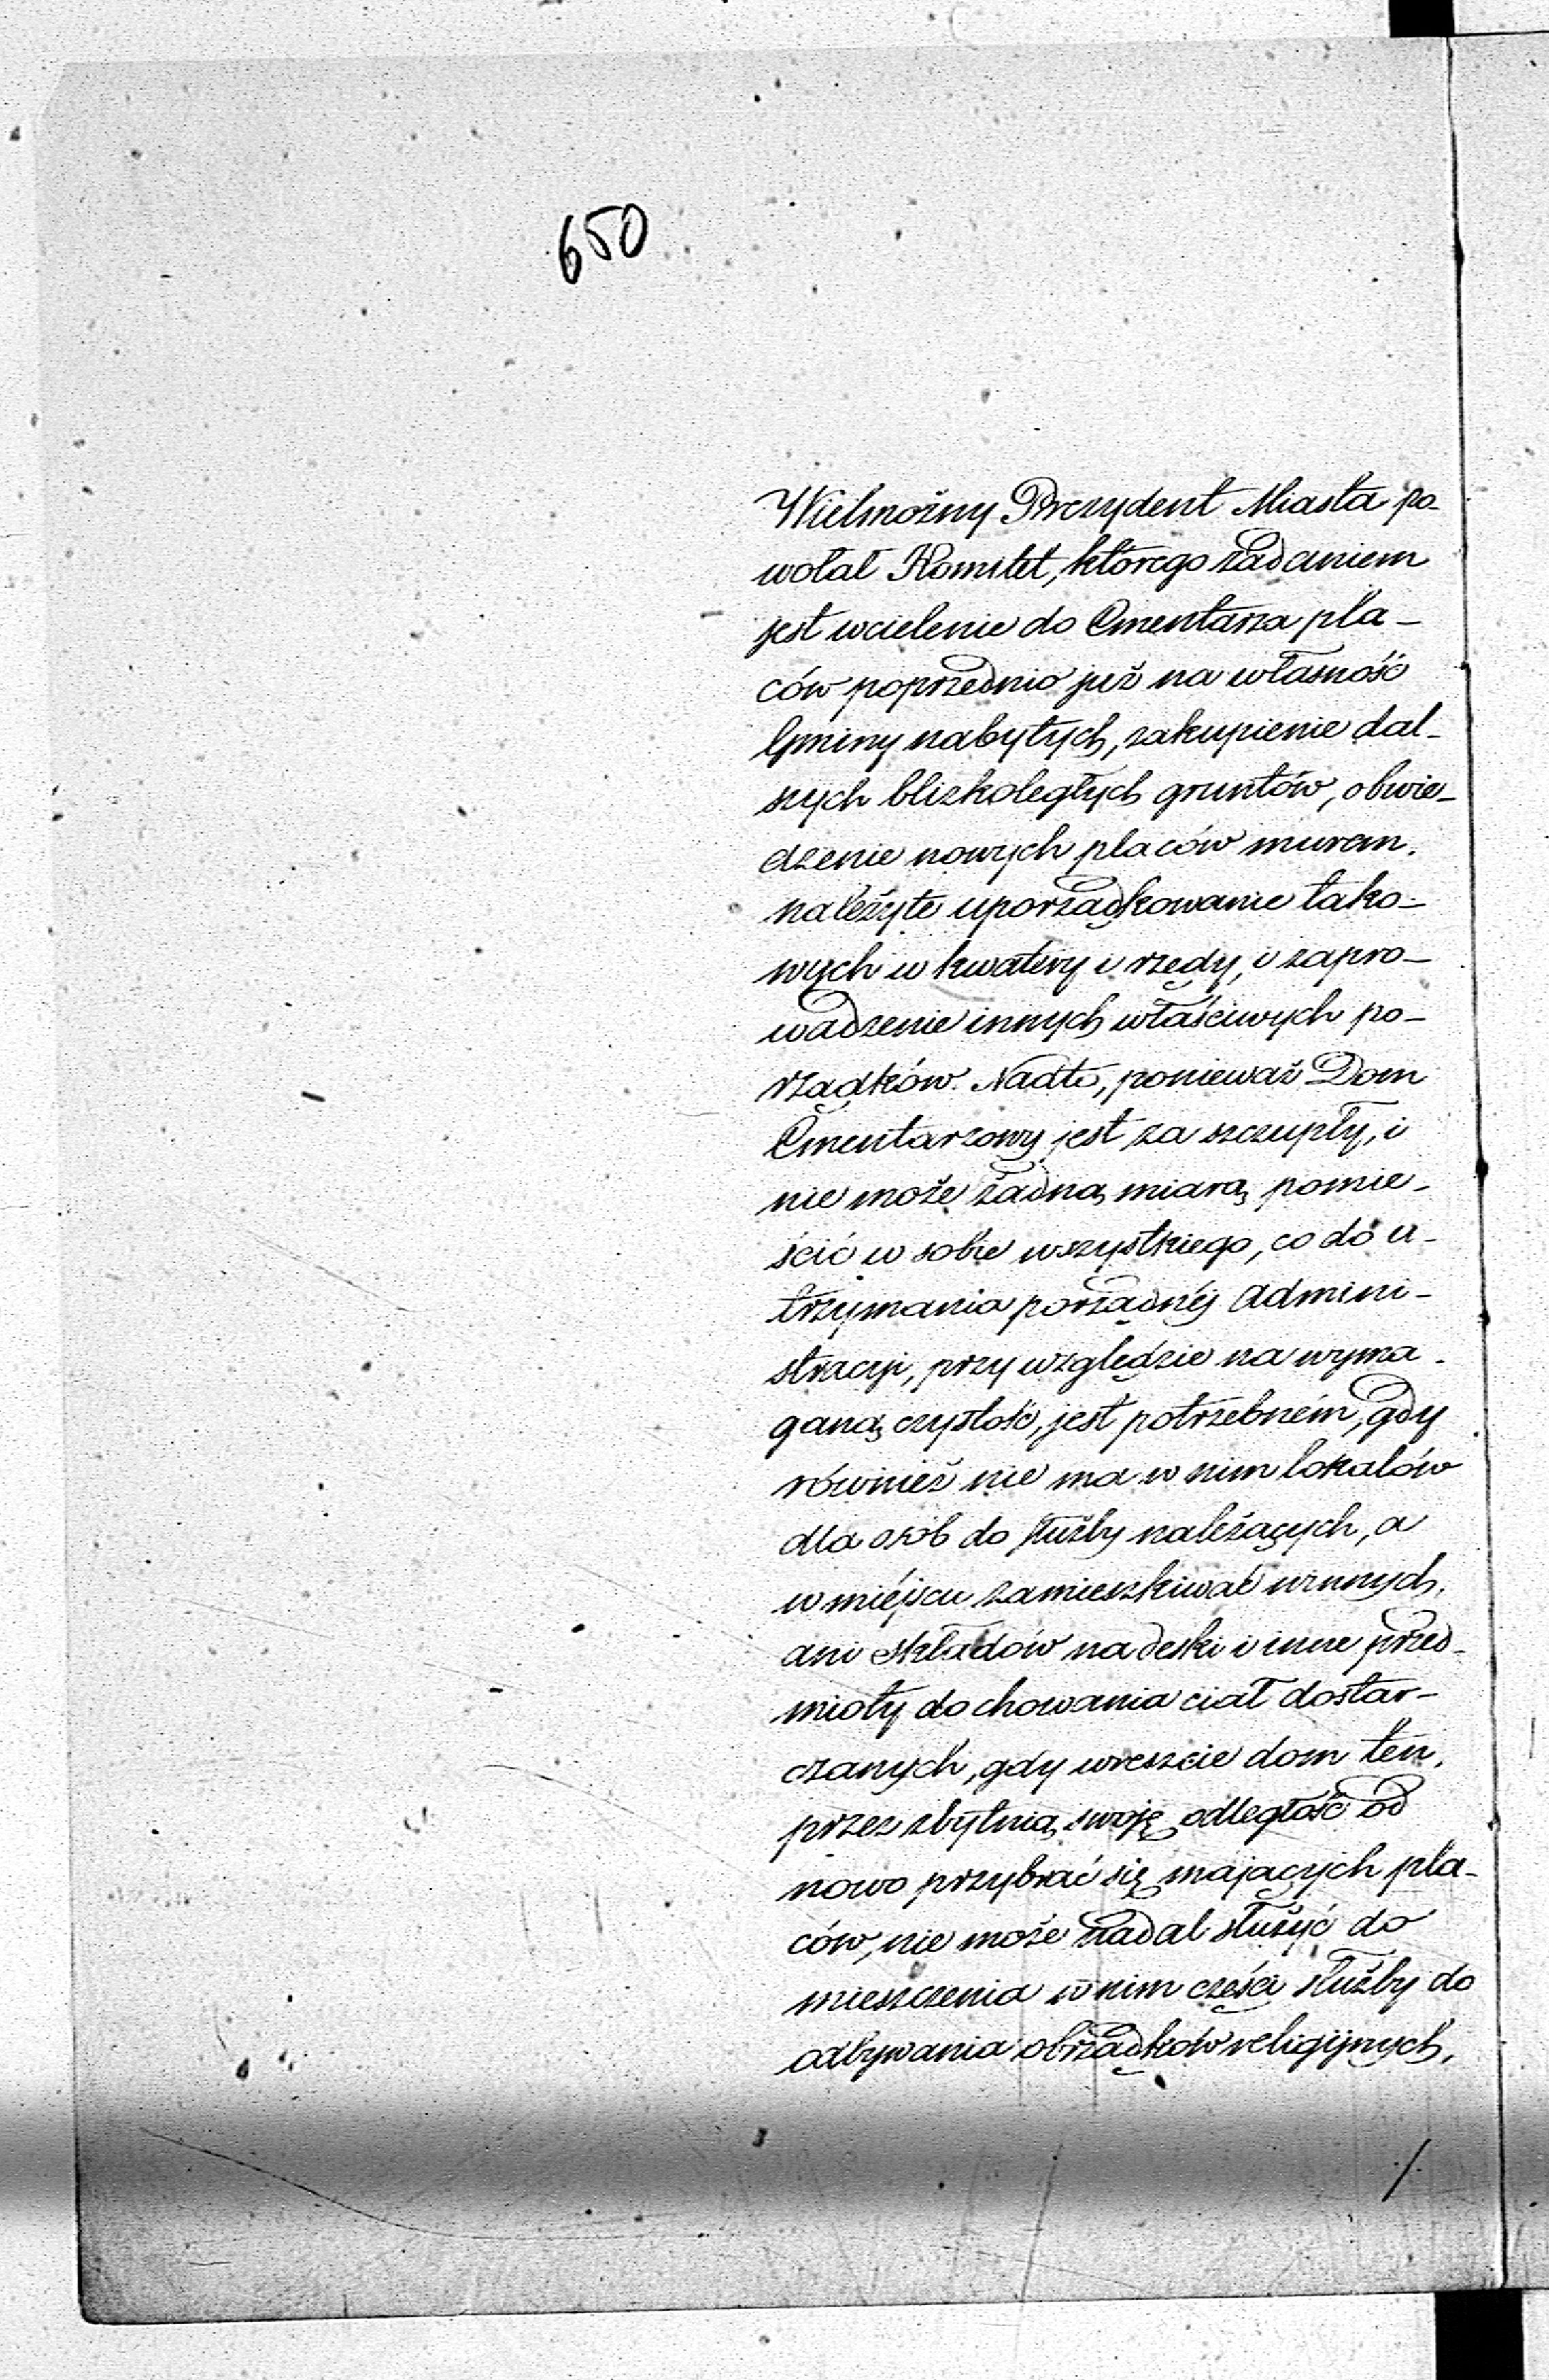 650
Wielmożny Prezydent Miasta po-
wołał Komitet, którego zadaniem
jest wcielenie do Cmentarza pla-
ców poprzednio już na własność
Gminy nabytych, zakupienie dal-
szych blizkoległych gruntów, obwie-
dzenie nowych placów murem,
należyte uporządkowanie tako-
wych w kwatery i rzędy, i zapro-
wadzenie innych właściwych po-
rządków. Nadto, ponieważ Dom
Cmentarzowy jest za szczupły, i
nie może żadną miarą pomie-
ścić w sobie wszystkiego, co do u-
trzymania porządnéj Admini-
stracyi, przy względzie na wyma-
ganą czystość, jest potrzebném, gdy
również nie ma w nim lokalów
dla osób do służby należących, a
w miéjscu zamieszkiwać winnych,
ani składów na deski i inne przed-
mioty do chowania ciał dostar-
czanych, gdy wreszcie dom ten,
przez zbytnią swoję odległość od
nowo przybrać się mających pla-
ców, nie może nadal służyć do
mieszczenia w nim części służby do
odbywania obrządków religijnych,
./.